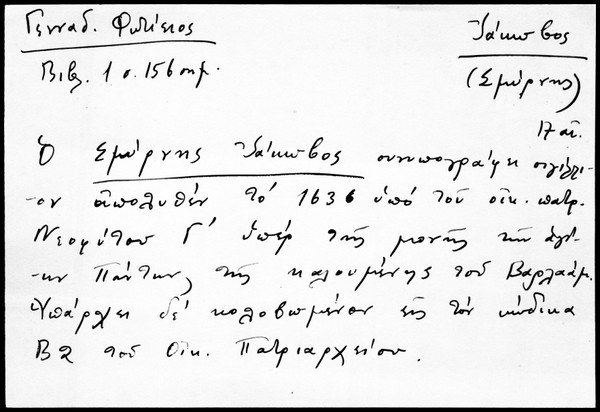 Γενναδ. Φωτίειος
Ἰάκωβος
Βιβλ. 1 σ. 156 σημ.
(Σμύρνης)
17 αἰ.
Ὁ Σμύρνης Ἰάκωβος συνυπογράφει σιγίλλι-
-ον ἀπολυθέν τό 1636 ὑπό τοῦ οἰκ. πατρ.
Νεοφύτου Γ' ὑπέρ τῆς μονῆς τῶν ἁγί-
-ων Πάντων τῆς καλουμένης τοῦ Βαρλαάμ.
Ὑπάρχει δέ κολοβωμένον εἰς τόν κώδικα
Β2 τοῦ Οἰκ. Πατριαρχείου.